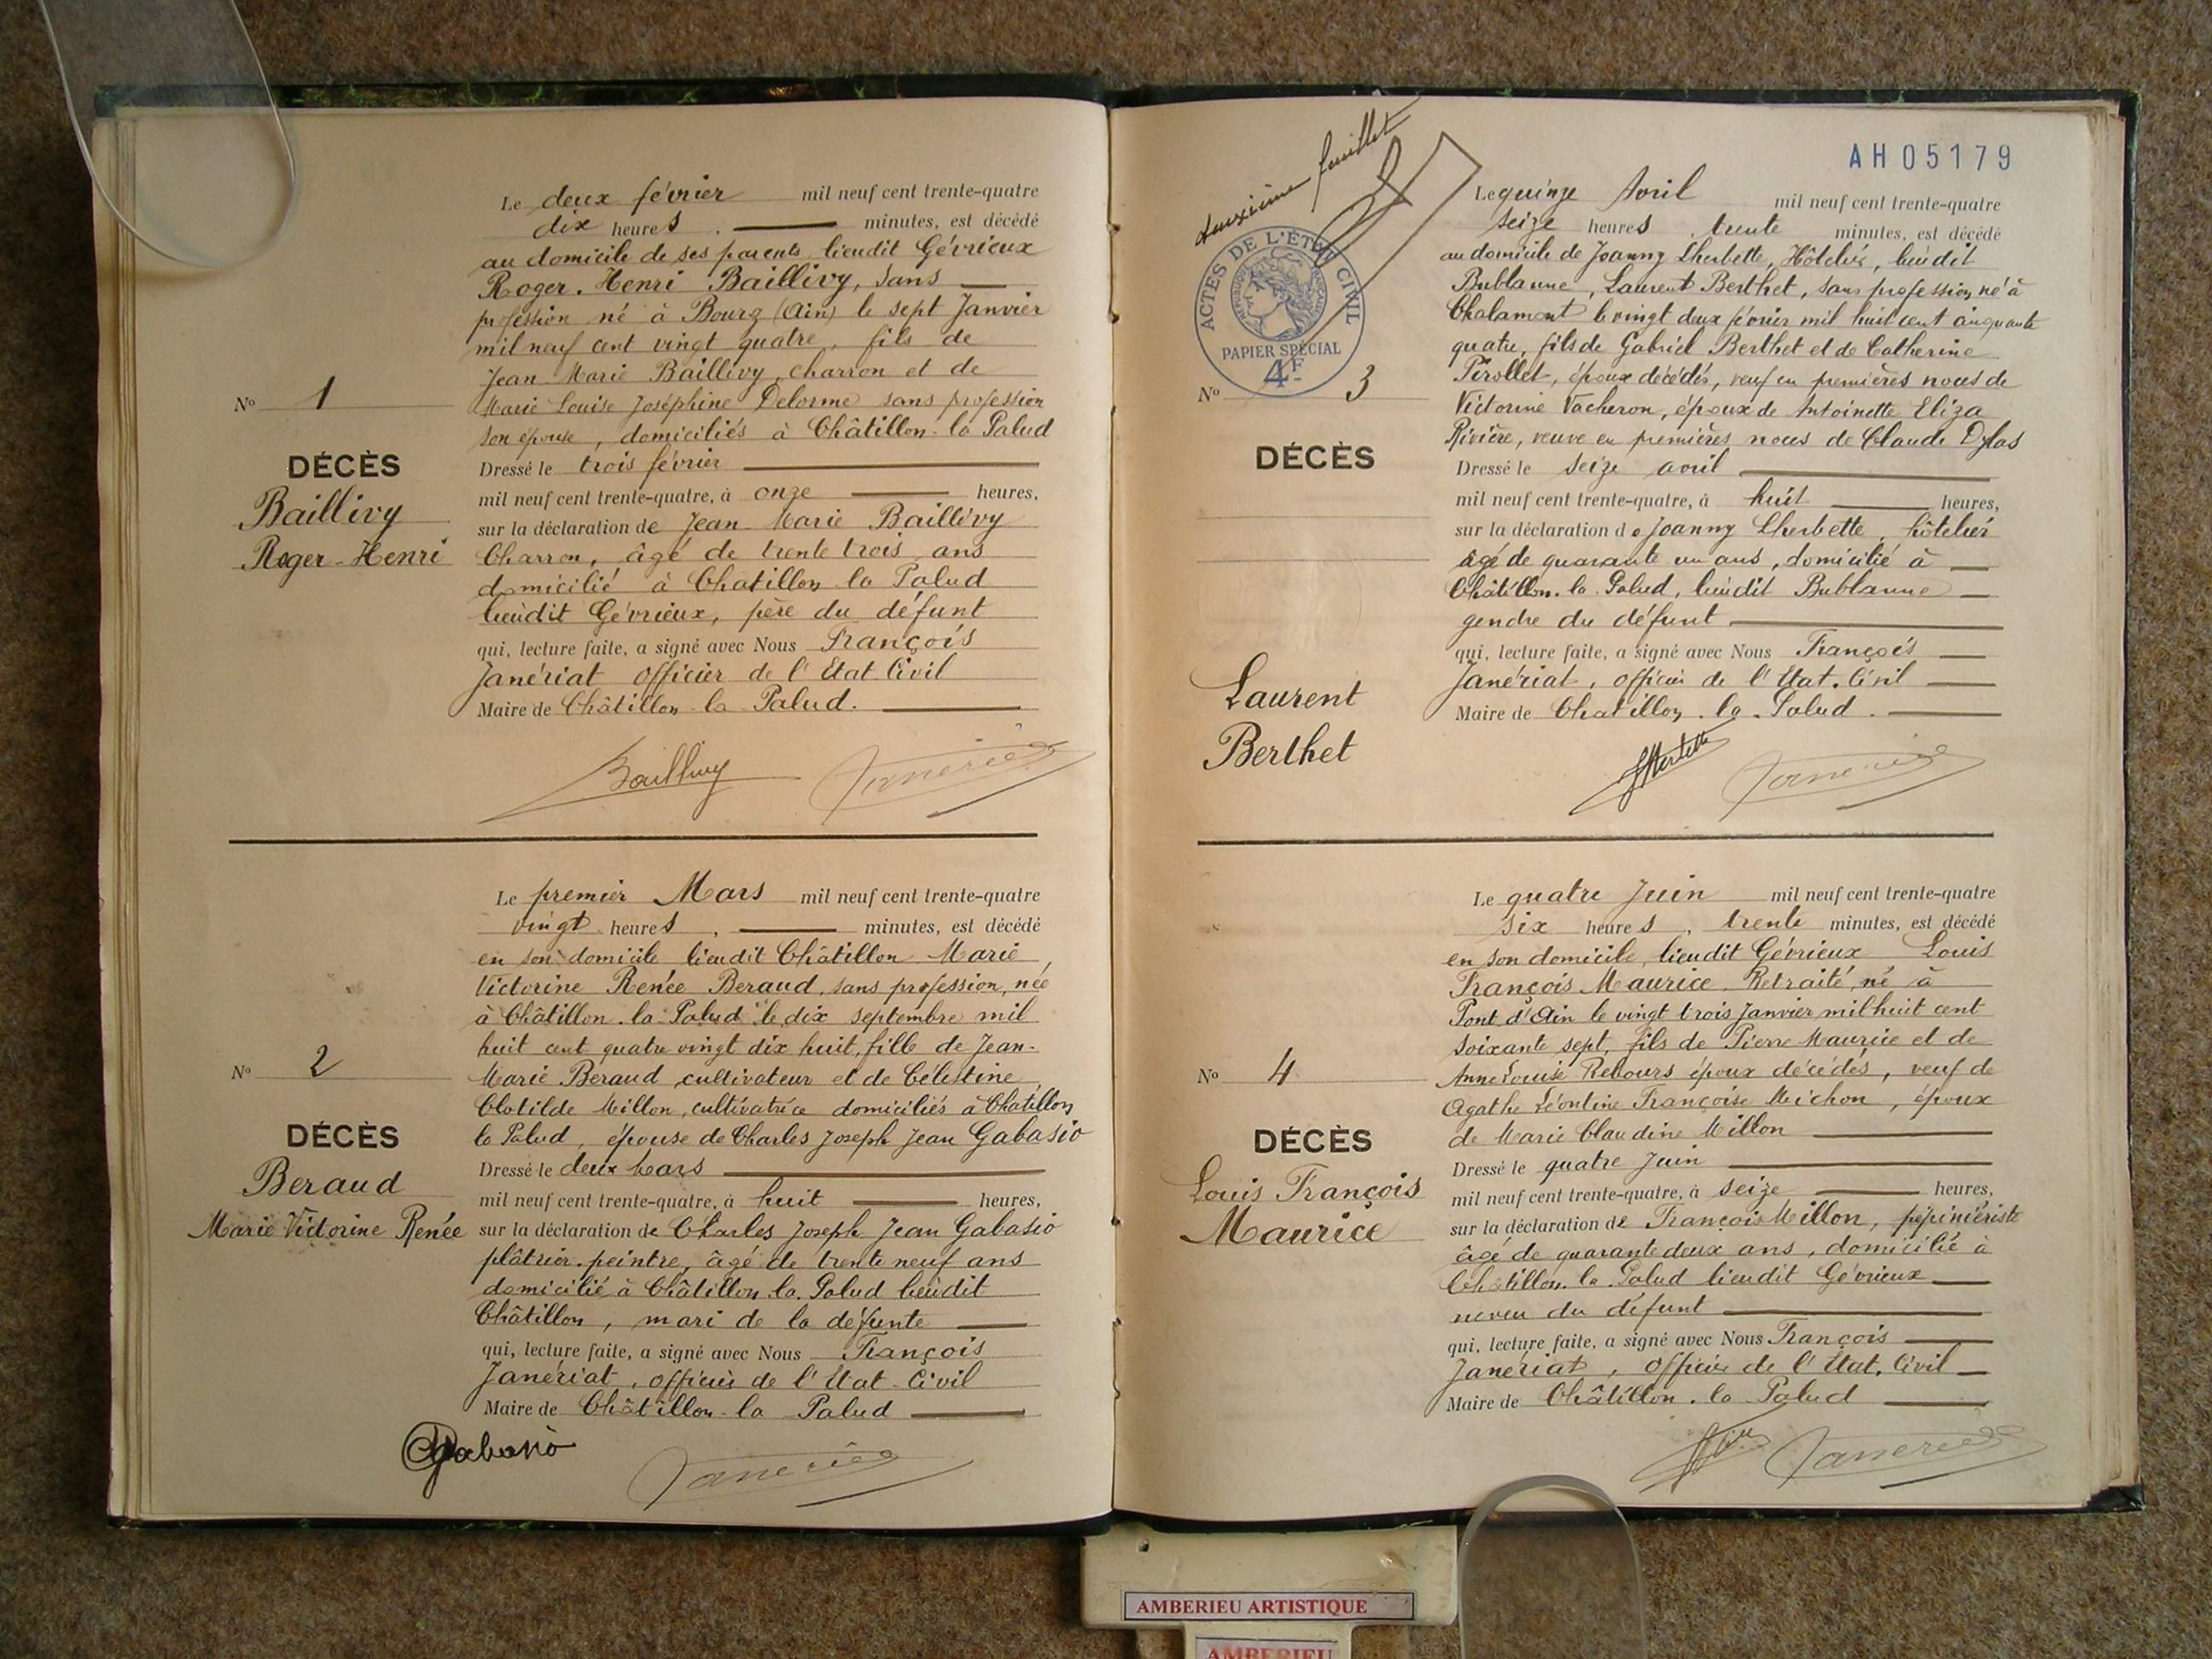 Le deux février mil neuf cent trente-quatre
dix heures . minutes, est décédé
au domicile de ses parents lieudit Gévrieux
Roger. Henri Baillivy, sans
profession né à Bourg (Ain) le sept Janvier
mil neuf cent vingt quatre, fils de
Jean Marie Baillivy, charron et de
No 1
Marie Louise Joséphine Delorme sans profession
son épouse, domiciliés à Châtillon-la Palud
DÉCÈS
Baillivy
Roger-Henri
Dressé le trois février
mil neuf cent trente-quatre, à onze heures,
sur la déclaration de Jean Marie Baillivy
Charron, âgé de trente trois ans
domicilié à Chatillon la Palud
lieudit Gévrieux, père du défunt
qui, lecture faite, a signé avec Nous François
Janériat officier de l'Etat Civil
Maire de Châtillon-la-Palud.
Baillivy
Le premier Mars mil neuf cent trente-quatre
vingt heures , minutes, est décédé
en son domicile lieudit Châtillon Marie
Victorine Renée Beraud, sans profession, née
à Châtillon-la-Palud le dix septembre mil
huit cent quatre vingt dix huit, fille de Jean-
No 2
Marie Beraud cultivateur et de Célestine
Clotilde Millon, cultivatrice domiciliés à Chatillon
la Palud, épouse de Charles Joseph Jean Gabasio
DÉCÈS
Beraud
Marie Victorine Renée
Dressé le deux Mars
mil neuf cent trente-quatre, à huit heures,
sur la déclaration de Charles Joseph Jean Gabasio
plâtrier-peintre, âgé de trente neuf ans
domicilié à Châtillon-la-Palud lieudit
Châtillon, mari de la défunte
qui, lecture faite, a signé avec Nous François
Janériat, officier de l'Etat-Civil
Maire de Châtillon-la Palud
Gabasio
deuxième feuillet
AH05179
ACTES DE L'ÉTAT CIVIL
PAPIER SPÉCIAL
4F
Le quinze Avril mil neuf cent trente-quatre
seize heures trente minutes, est décédé
au domicile de Joanny Lherbette, Hôtelier, lieudit
Bublanne, Laurent Berthet, sans profession né à
Chalamont le vingt deux février mil huit cent cinquante
quatre, fils de Gabriel Berthet et de Catherine
No 3
Pirollet, époux décédés, veuf en premières noces de
Victorine Vacheron, époux de Antoinette Eliza
Rivière, veuve en premières noces de Claude Dylas
DÉCÈS
Laurent
Berthet
Dressé le seize avril
mil neuf cent trente-quatre, à huit heures,
sur la déclaration de Joanny Lherbette, hôtelier
âgé de quarante un ans, domicilié à
Châtillon-la-Palud, lieudit Bublanne
gendre du défunt
qui, lecture faite, a signé avec Nous François
Janériat, officier de l'Etat-Civil
Maire de Chatillon-la-Palud.
Le quatre Juin mil neuf cent trente-quatre
six heures , trente minutes, est décédé
en son domicile, lieudit Gévrieux Louis
François Maurice Retraité, né à
Pont d'Ain le vingt trois Janvier mil huit cent
soixante sept, fils de Pierre Maurice et de
No 4
Anne Louise Rebours époux décédés, veuf de
Agathe Léontine Françoise Michon, époux
de Marie Claudine Millon
DÉCÈS
Louis François
Maurice
Dressé le quatre Juin
mil neuf cent trente-quatre, à seize heures,
sur la déclaration de François Millon, pépiniériste
âgé de quarante deux ans, domicilié à
Châtillon-la-Palud lieudit Gévrieux
neveu du défunt
qui, lecture faite, a signé avec Nous François
Janériat, officier de l'Etat-Civil
Maire de Châtillon-la-Palud
AMBERIEU ARTISTIQUE
AMBERIEU